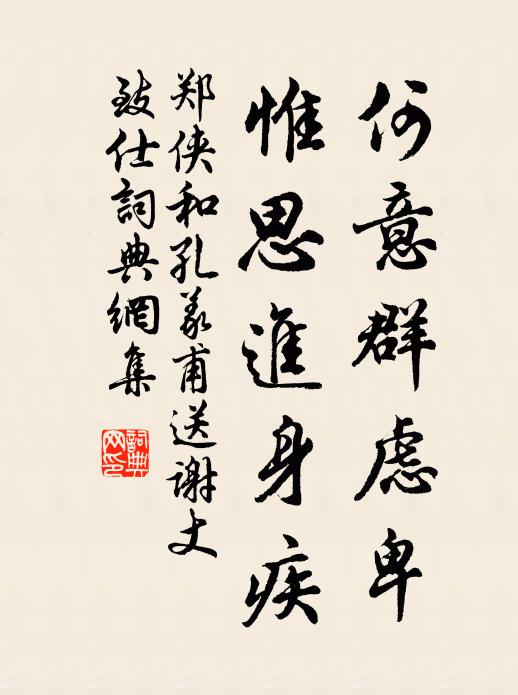 何意群虑卑
惟思進身疾
郑侠和孔义甫送谢丈
致仕詞典網集
詞典
网印